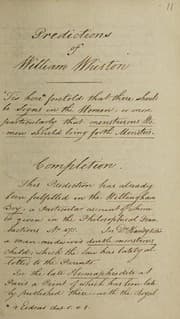 11
Predictions
of
William Whiston
Tis here foretold that there should
be Signs in the Women, & more
particularly that menstruous Wo-
men should bring forth Monsters.
Completion.
This Prediction has already
been fulfilled in the Nottingham
Boy, a Particular account of whom
is given in the Philosophical Tran-
sactions No 475.
a man midwives death monstrous
child, which the Law has lately al-
In the late Hermaphrodite at
Paris a Print of which has been late-
ly published there — with the Royal
* 2 Esdras